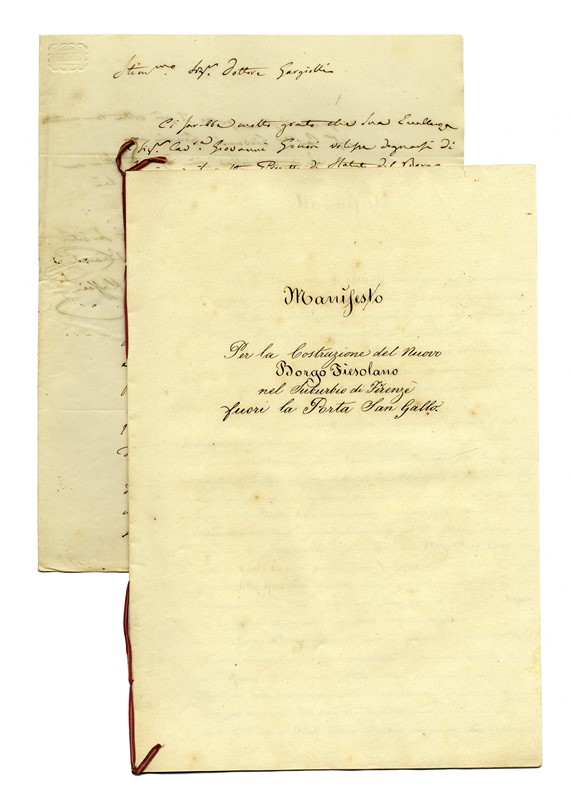 Stim.mo Sig.r Dottore Gargiolli
Ci sarebbe molto grato che Sua Eccellenza
Sig.r Cav.e Giovanni Ginori volesse degnarsi di
di Statuto del Borgo
Manifesto
Per la Costruzione del Nuovo
Borgo Fiesolano
nel Suburbio di Firenze
fuori la Porta San Gallo.